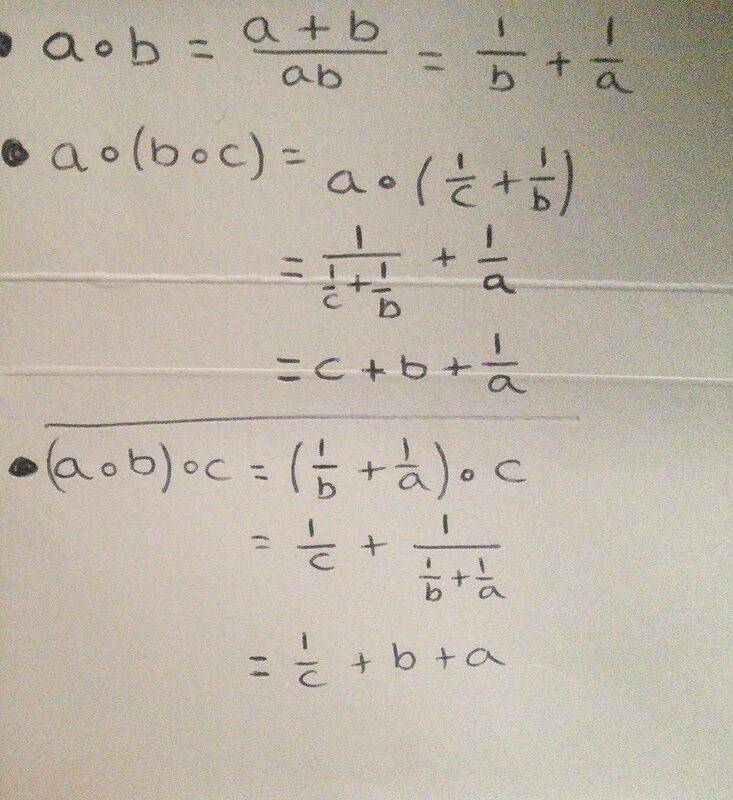 • a∘b = (a + b)/(ab) = 1/b + 1/a
• a∘(b∘c) = a∘(1/c + 1/b)
= 1/(1/c + 1/b) + 1/a
= c + b + 1/a
• (a∘b)∘c = (1/b + 1/a)∘c
= 1/c + 1/(1/b + 1/a)
= 1/c + b + a